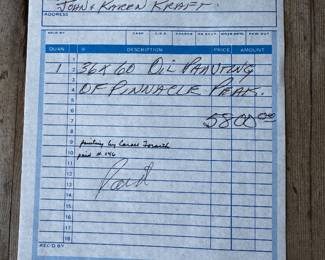 John & Karen Kraft
ADDRESS
SOLD BY CASH C.O.D. CHARGE ON ACCT. MDSE. RETD. PAID OUT
QUAN. # DESCRIPTION PRICE AMOUNT
1 1 36x60 Oil Painting
2 of Pinnacle Peak.
3
4
5 5800
6
7
8
9 painting by Carole
10 paid # 146
11
12 Paid
13
14
15
16
17
18
REC'D BY